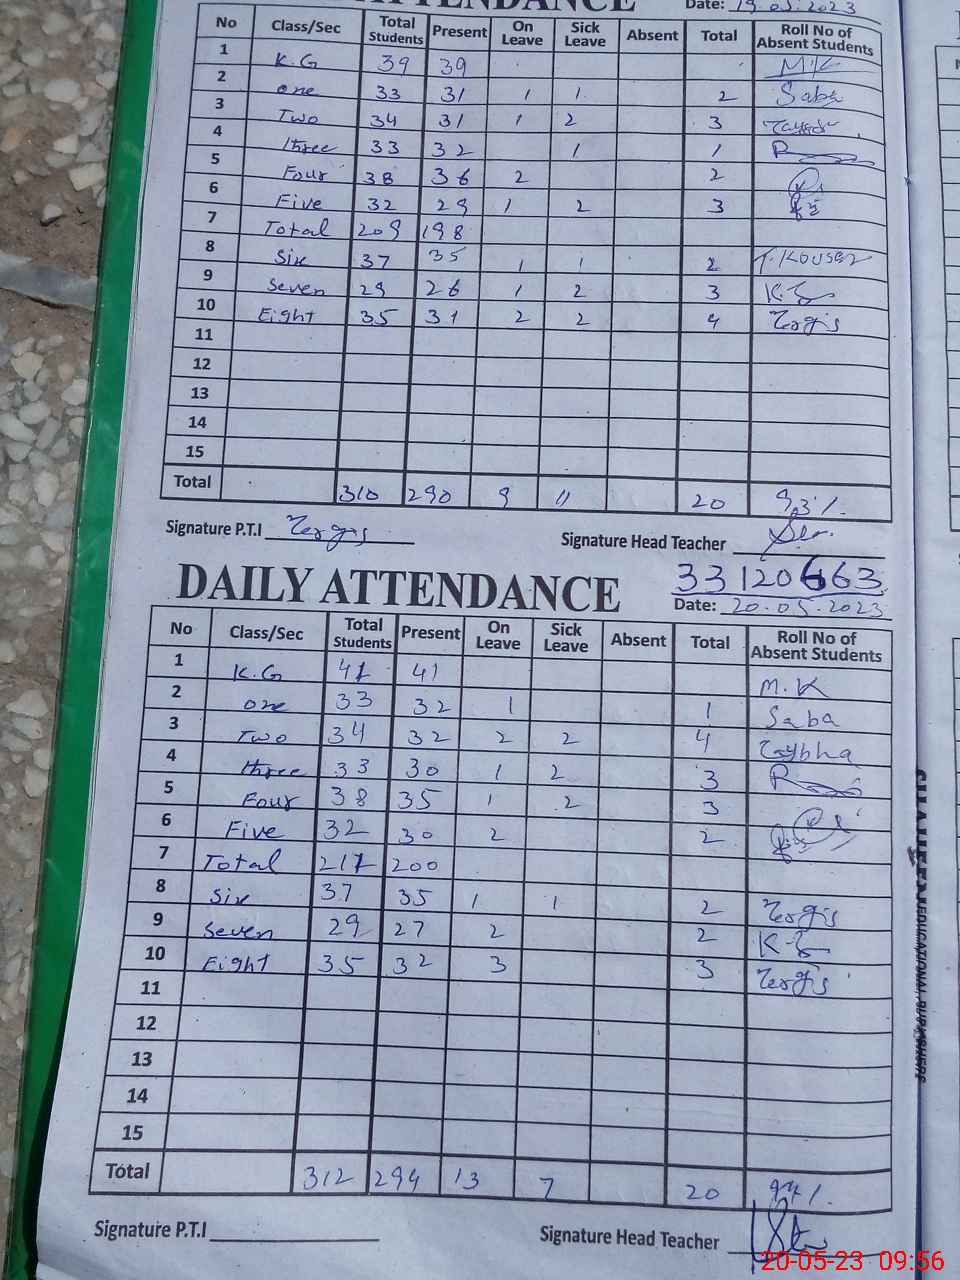 ATTENDANCE
Date: 19.05.2023
No Class/Sec Total Students Present On Leave Sick Leave Absent Total Roll No of Absent Students
1 K.G 39 39 M.K
2 one 33 31 1 1 2 Saba
3 Two 34 31 1 2 3
4 three 33 32 1 1
5 Four 38 36 2 2
6 Five 32 29 1 2 3
7 Total 209 198
8 Six 37 35 1 1 2 T.Kousar
9 Seven 29 26 1 2 3
10 Eight 35 31 2 2 4 Nergis
11
12
13
14
15
Total 310 290 9 11 20 93%.
Signature P.T.I Nergis Signature Head Teacher
DAILY ATTENDANCE 33120663
Date: 20.05.2023
No Class/Sec Total Students Present On Leave Sick Leave Absent Total Roll No of Absent Students
1 K.G 41 41 M.K
2 one 33 32 1 1 Saba
3 Two 34 32 2 2 4 Taybha
4 three 33 30 1 2 3
5 Four 38 35 1 2 3
6 Five 32 30 2 2
7 Total 211 200
8 Six 37 35 1 1 2 Nergis
9 Seven 29 27 2 2
10 Eight 35 32 3 3 Nergis
11
12
13
14
15
Total 312 294 13 7 20 94%.
Signature P.T.I Signature Head Teacher
EDUCATIONAL PUBLISHERS
20-05-23 09:56